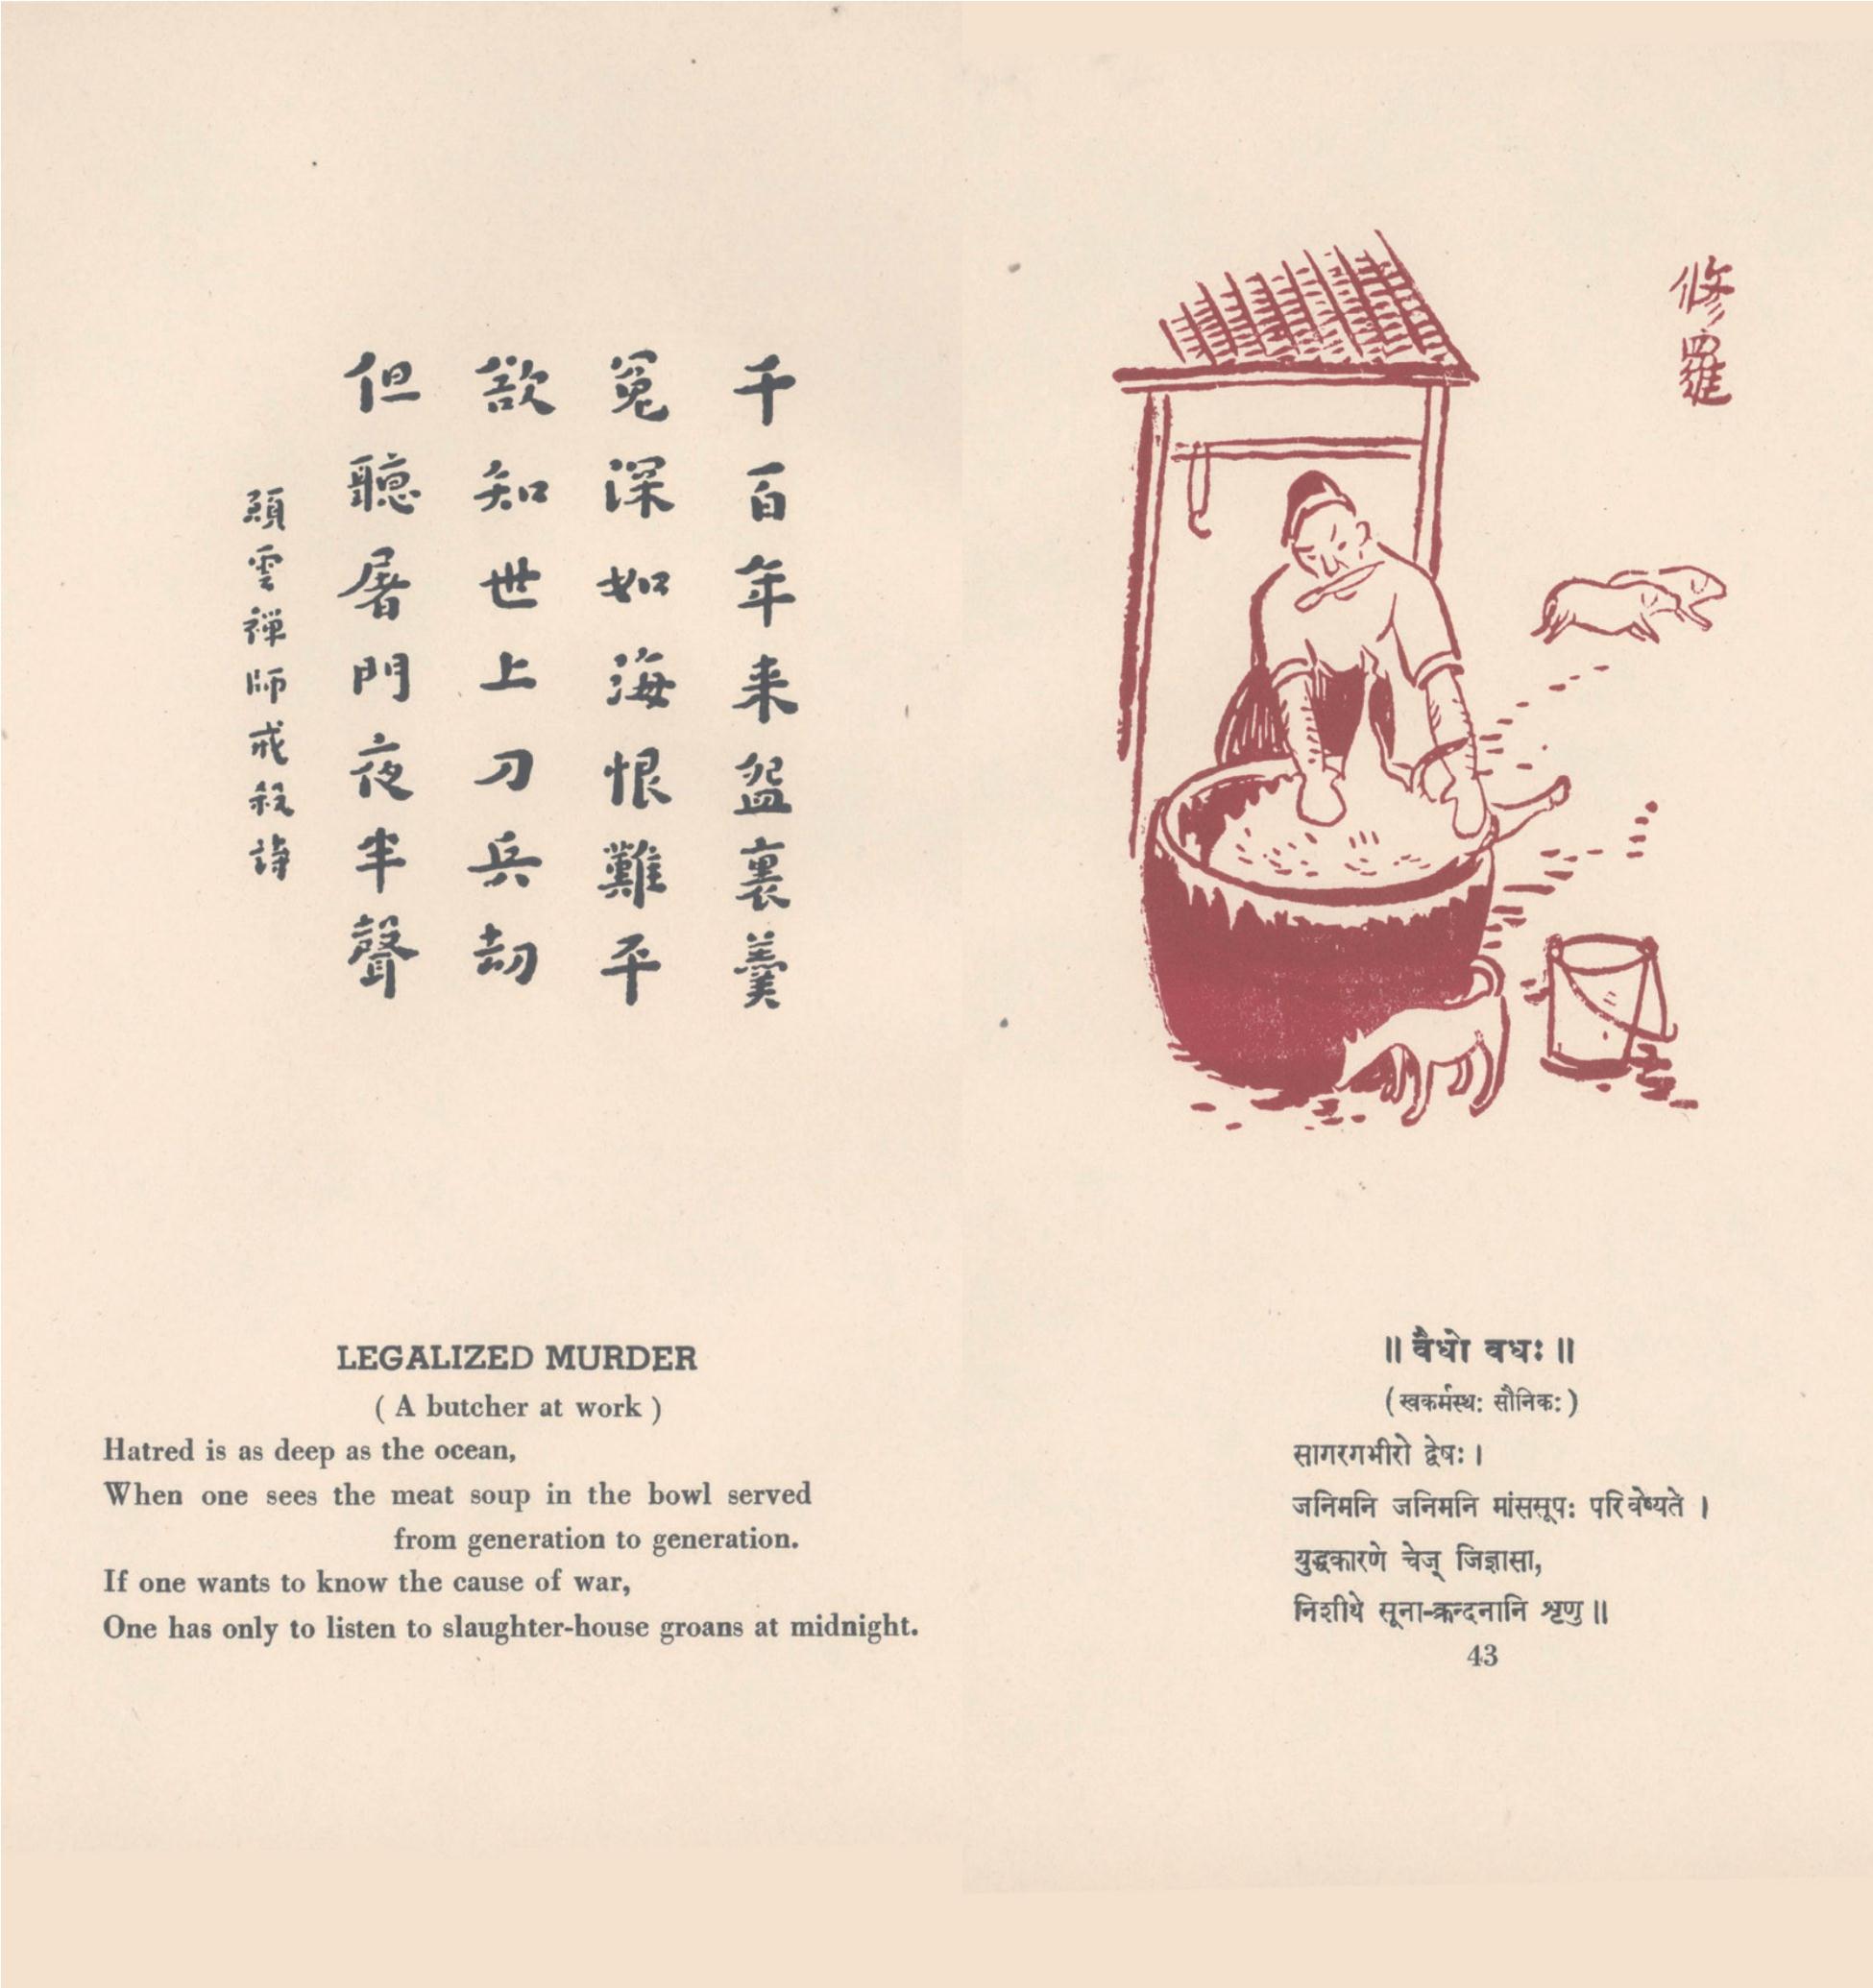 千百年来盌裏羹
冤深如海恨難平
欲知世上刀兵劫
但聽屠門夜半聲
願雲禪師戒殺詩
LEGALIZED MURDER
( A butcher at work )
Hatred is as deep as the ocean,
When one sees the meat soup in the bowl served
from generation to generation.
If one wants to know the cause of war,
One has only to listen to slaughter-house groans at midnight.
修羅
॥ वैधो वधः ॥
(स्वकर्मस्थः सौनिकः)
सागरगभीरो द्वेषः ।
जनिमनि जनिमनि मांससूपः परिवेष्यते ।
युद्धकारणे चेज् जिज्ञासा,
निशीथे सूना-क्रन्दनानि शृणु ॥
43